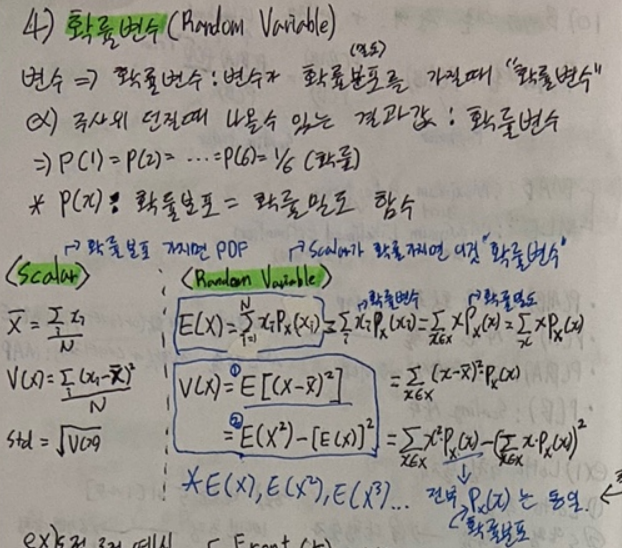 4) 확률변수 (Random Variable)
(밀도)
변수 => 확률변수 : 변수가 확률분포를 가질때 "확률변수"
ex) 주사위 던질때 나올수 있는 결과값 : 확률변수
=> P(1) = P(2) = ... = P(6) = 1/6 (확률)
* P(x) : 확률분포 = 확률밀도 함수
확률분포 가지면 PDP
Scalar가 확률가지면 이것 "확률변수"
<Scalar>
X̄ = Σᵢ xᵢ / N
V(x) = Σᵢ (xᵢ - X̄)² / N
Std = √V(x)
<Random Variable>
확률변수 확률밀도
E(X) = Σᵢ₌₁ᴺ xᵢ Pₓ(xᵢ) = Σᵢ xᵢ Pₓ(xᵢ) = Σ_{x∈X} x Pₓ(x) = Σₓ x Pₓ(x)
V(x) = ① E[(X - x̄)²] = Σ_{x∈X} (x - x̄)² Pₓ(x)
② = E(X²) - [E(X)]² = Σ_{x∈X} x² Pₓ(x) - (Σ_{x∈X} x · Pₓ(x))²
* E(X), E(X²), E(X³) ... 전부 Pₓ(x) 는 동일.
확률분포